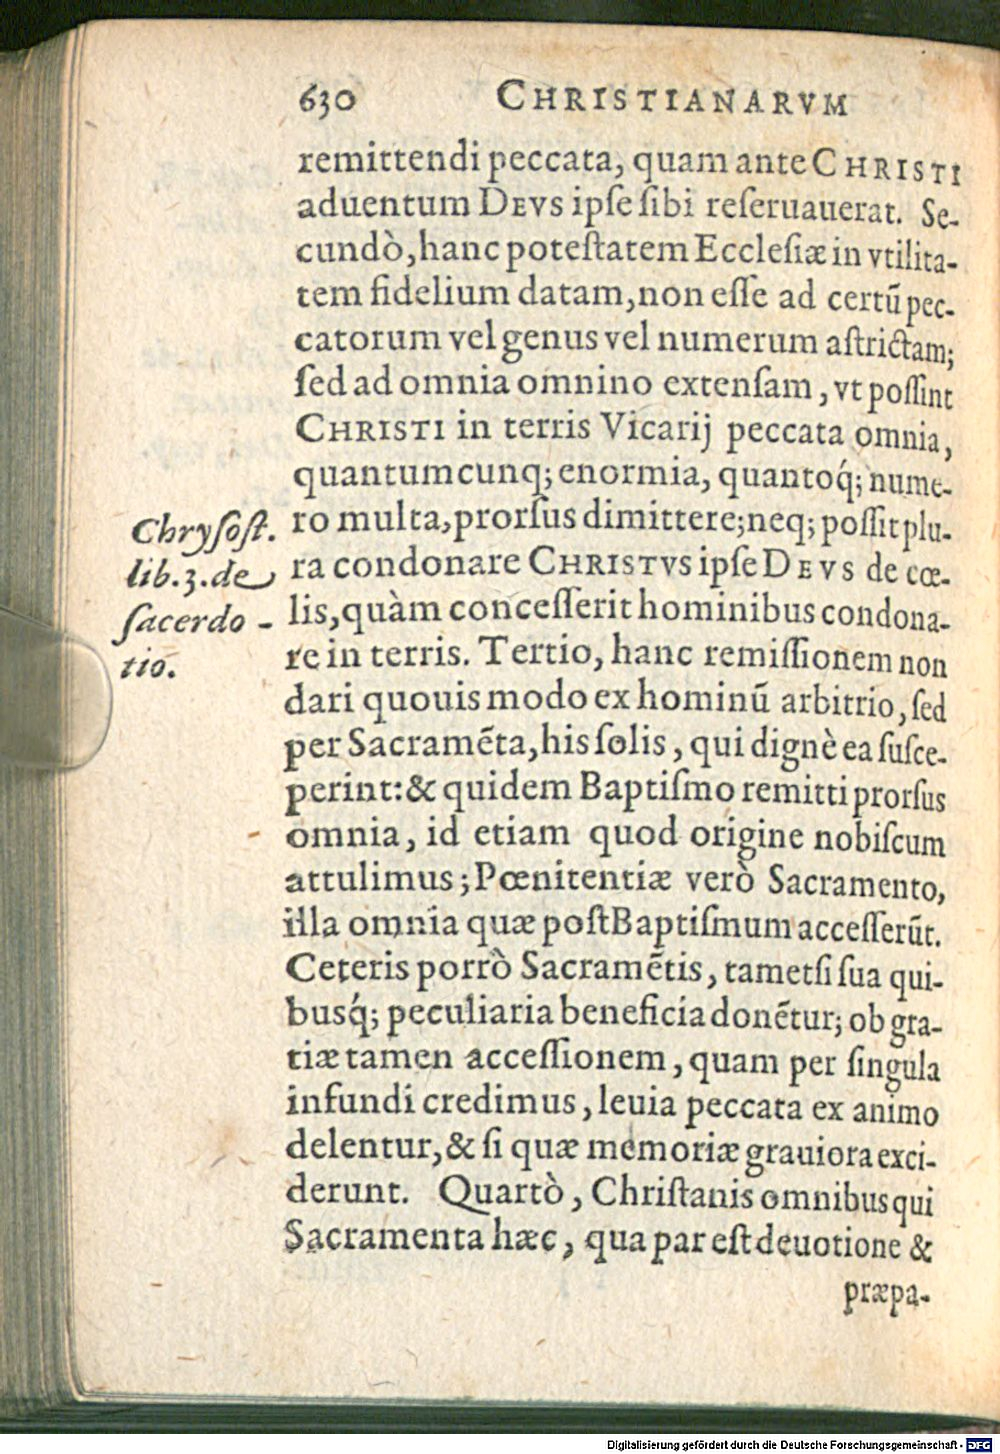 630 CHRISTIANARVM
remittendi peccata, quam ante CHRISTI
aduentum DEVS ipſe ſibi reſeruauerat. Se-
cundò, hanc poteſtatem Eccleſiæ in vtilita-
tem fidelium datam, non eſſe ad certũ pec-
catorum vel genus vel numerum aſtrictam;
ſed ad omnia omnino extenſam, vt poſſint
CHRISTI in terris Vicarij peccata omnia,
quantumcunq; enormia, quantoq́; nume-
ro multa, prorſus dimittere; neq; poſſit plu-
ra condonare CHRISTVS ipſe DEVS de cœ-
lis, quàm conceſſerit hominibus condona-
re in terris. Tertio, hanc remiſſionem non
dari quouis modo ex hominũ arbitrio, ſed
per Sacramẽta, his ſolis, qui dignè ea ſuſce-
perint: & quidem Baptiſmo remitti prorſus
omnia, id etiam quod origine nobiſcum
attulimus; Pœnitentiæ verò Sacramento,
illa omnia quæ poſt Baptiſmum acceſſerũt.
Ceteris porrò Sacramẽtis, tametſi ſua qui-
busq́; peculiaria beneficia donẽtur; ob gra-
tiæ tamen acceſſionem, quam per ſingula
infundi credimus, leuia peccata ex animo
delentur, & ſi quæ memoriæ grauiora exci-
derunt. Quartò, Chriſtanis omnibus qui
Sacramenta hæc, qua par eſt deuotione &
præpa-
Chryſoſt.
lib. 3. de
ſacerdo-
tio.
Digitalisierung gefördert durch die Deutsche Forschungsgemeinschaft - DFG